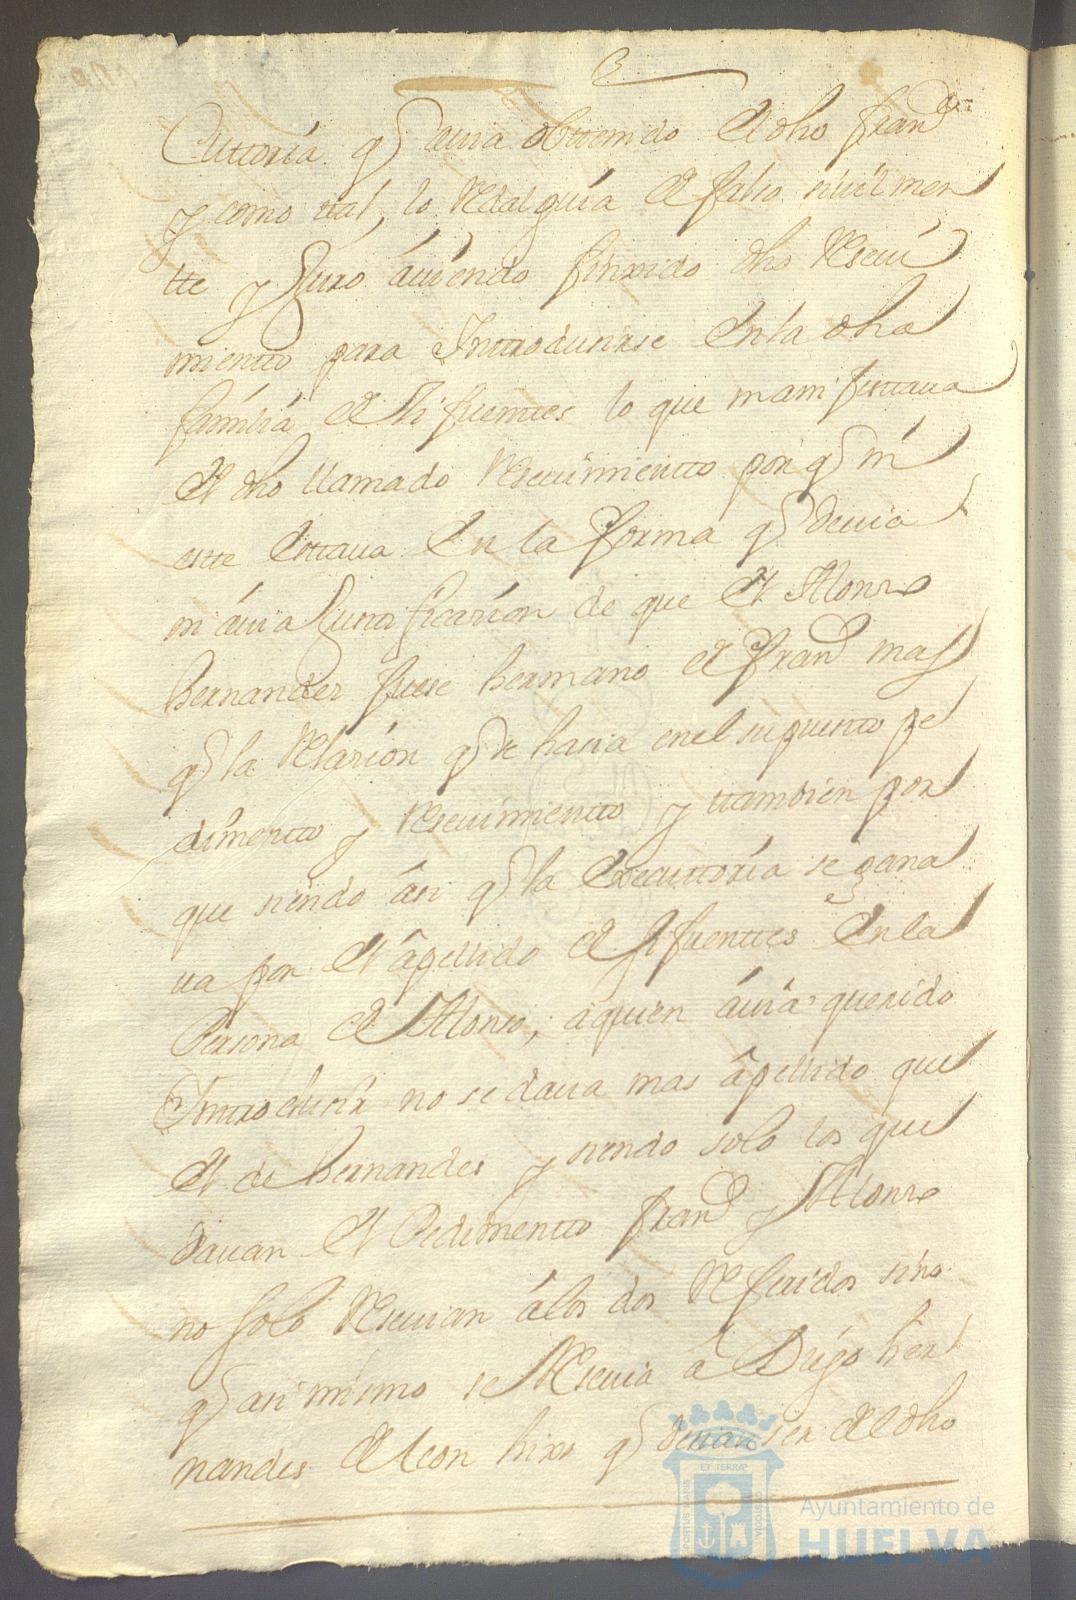 Cuttoria q̃ auia obttenido El dho fran.co
y como tal, lo Redalguia de falso siuilmen
tte y Juro áuiendo finxido dho Reseui
mientto para Inttrodusirse En la dha
família de Sifuentes lo que manifesttaua
El dho llamado Reseuimientto porq̃ ni
este Esttaua En la forma q̃ deuia
ni áuia Justtificasíon de que El Alonso
hernandez fuese hermano de fran.co mas
q̃ la Relasíon q̃ se hasia en el supuesto pe
dimentto y Reseuimientto y ttambien por
que siendo ási q̃ la Executtoría se gana
ua por El ápellido de Sifuenttes En la
Persona de Alonso, a quien áuia querido
Inttrodusir no se daua mas ápellido que
El de hernandes y siendo solo los que
dauan El Pedimentto fran.co y Alonso
no solo Reseuian álos dos Referidos sino
q̃ asi mismo se Reseuia á Diégo her
nandes de leon hixo q̃ desian ser del dho
PORTUS MARIS
ET TERRÆ
CUSTODIA
Ayuntamiento de
HUELVA